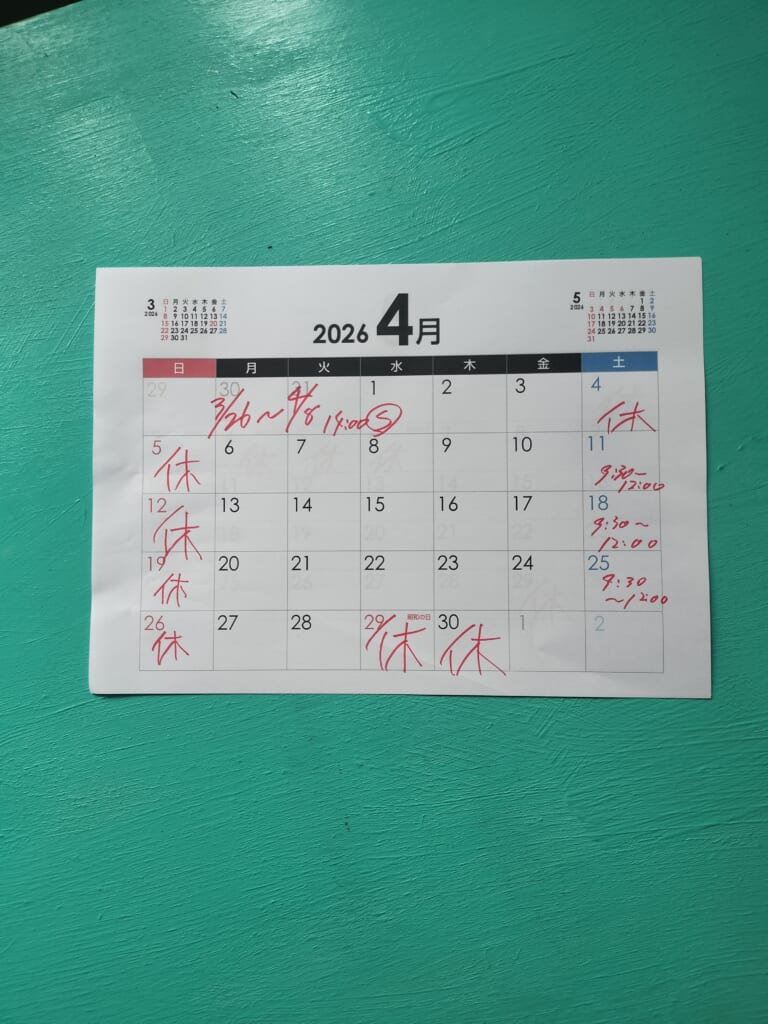 3 2026
日 月 火 水 木 金 土
1 2 3 4 5 6 7
8 9 10 11 12 13 14
15 16 17 18 19 20 21
22 23 24 25 26 27 28
29 30 31
2026 4月
5 2026
日 月 火 水 木 金 土
1 2
3 4 5 6 7 8 9
10 11 12 13 14 15 16
17 18 19 20 21 22 23
24 25 26 27 28 29 30
31
日 月 火 水 木 金 土
29 30 31 1 2 3 4
3/26〜4/8 14:00 休
5 6 7 8 9 10 11
休 9:30〜
12:00
12 13 14 15 16 17 18
休 9:30〜
12:00
19 20 21 22 23 24 25
休 9:30
〜12:00
26 27 28 29 昭和の日 30 1 2
休 休 休